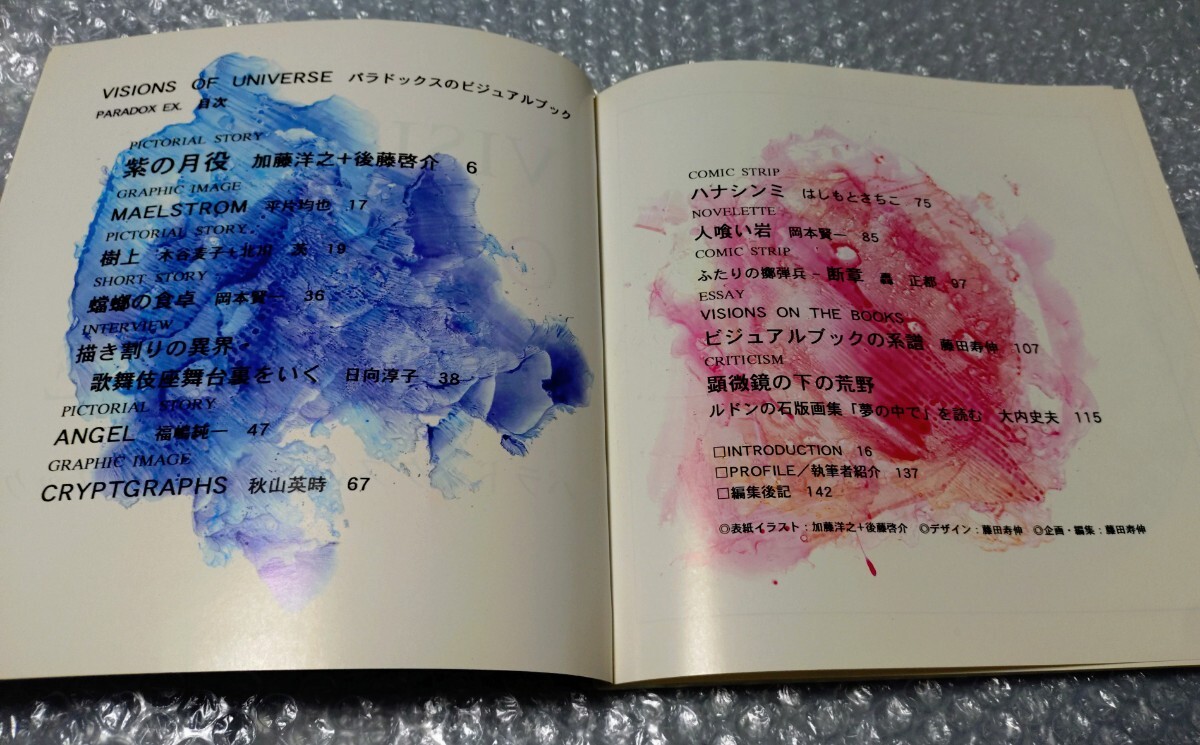 VISIONS OF UNIVERSE パラドックスのビジュアルブック
PARADOX EX. 目次
PICTORIAL STORY
紫の月役 加藤洋之+後藤啓介 6
GRAPHIC IMAGE
MAELSTROM 平片均也 17
PICTORIAL STORY
樹上 木谷麦子+北川 19
SHORT STORY
蟷螂の食卓 岡本賢一 36
INTERVIEW
描き割りの異界
歌舞伎座舞台裏をいく 日向淳子 38
PICTORIAL STORY
ANGEL 福嶋純一 47
GRAPHIC IMAGE
CRYPTGRAPHS 秋山英時 67
COMIC STRIP
ハナシンミ はしもとさちこ 75
NOVELETTE
人喰い岩 岡本賢一 85
COMIC STRIP
ふたりの擲弾兵-断章 轟 正都 97
ESSAY
VISIONS ON THE BOOKS
ビジュアルブックの系譜 藤田寿伸 107
CRITICISM
顕微鏡の下の荒野
ルドンの石版画集「夢の中で」を読む 大内史夫 115
□INTRODUCTION 16
□PROFILE/執筆者紹介 137
□編集後記 142
◎表紙イラスト:加藤洋之+後藤啓介 ◎デザイン:藤田寿伸 ◎企画・編集:藤田寿伸